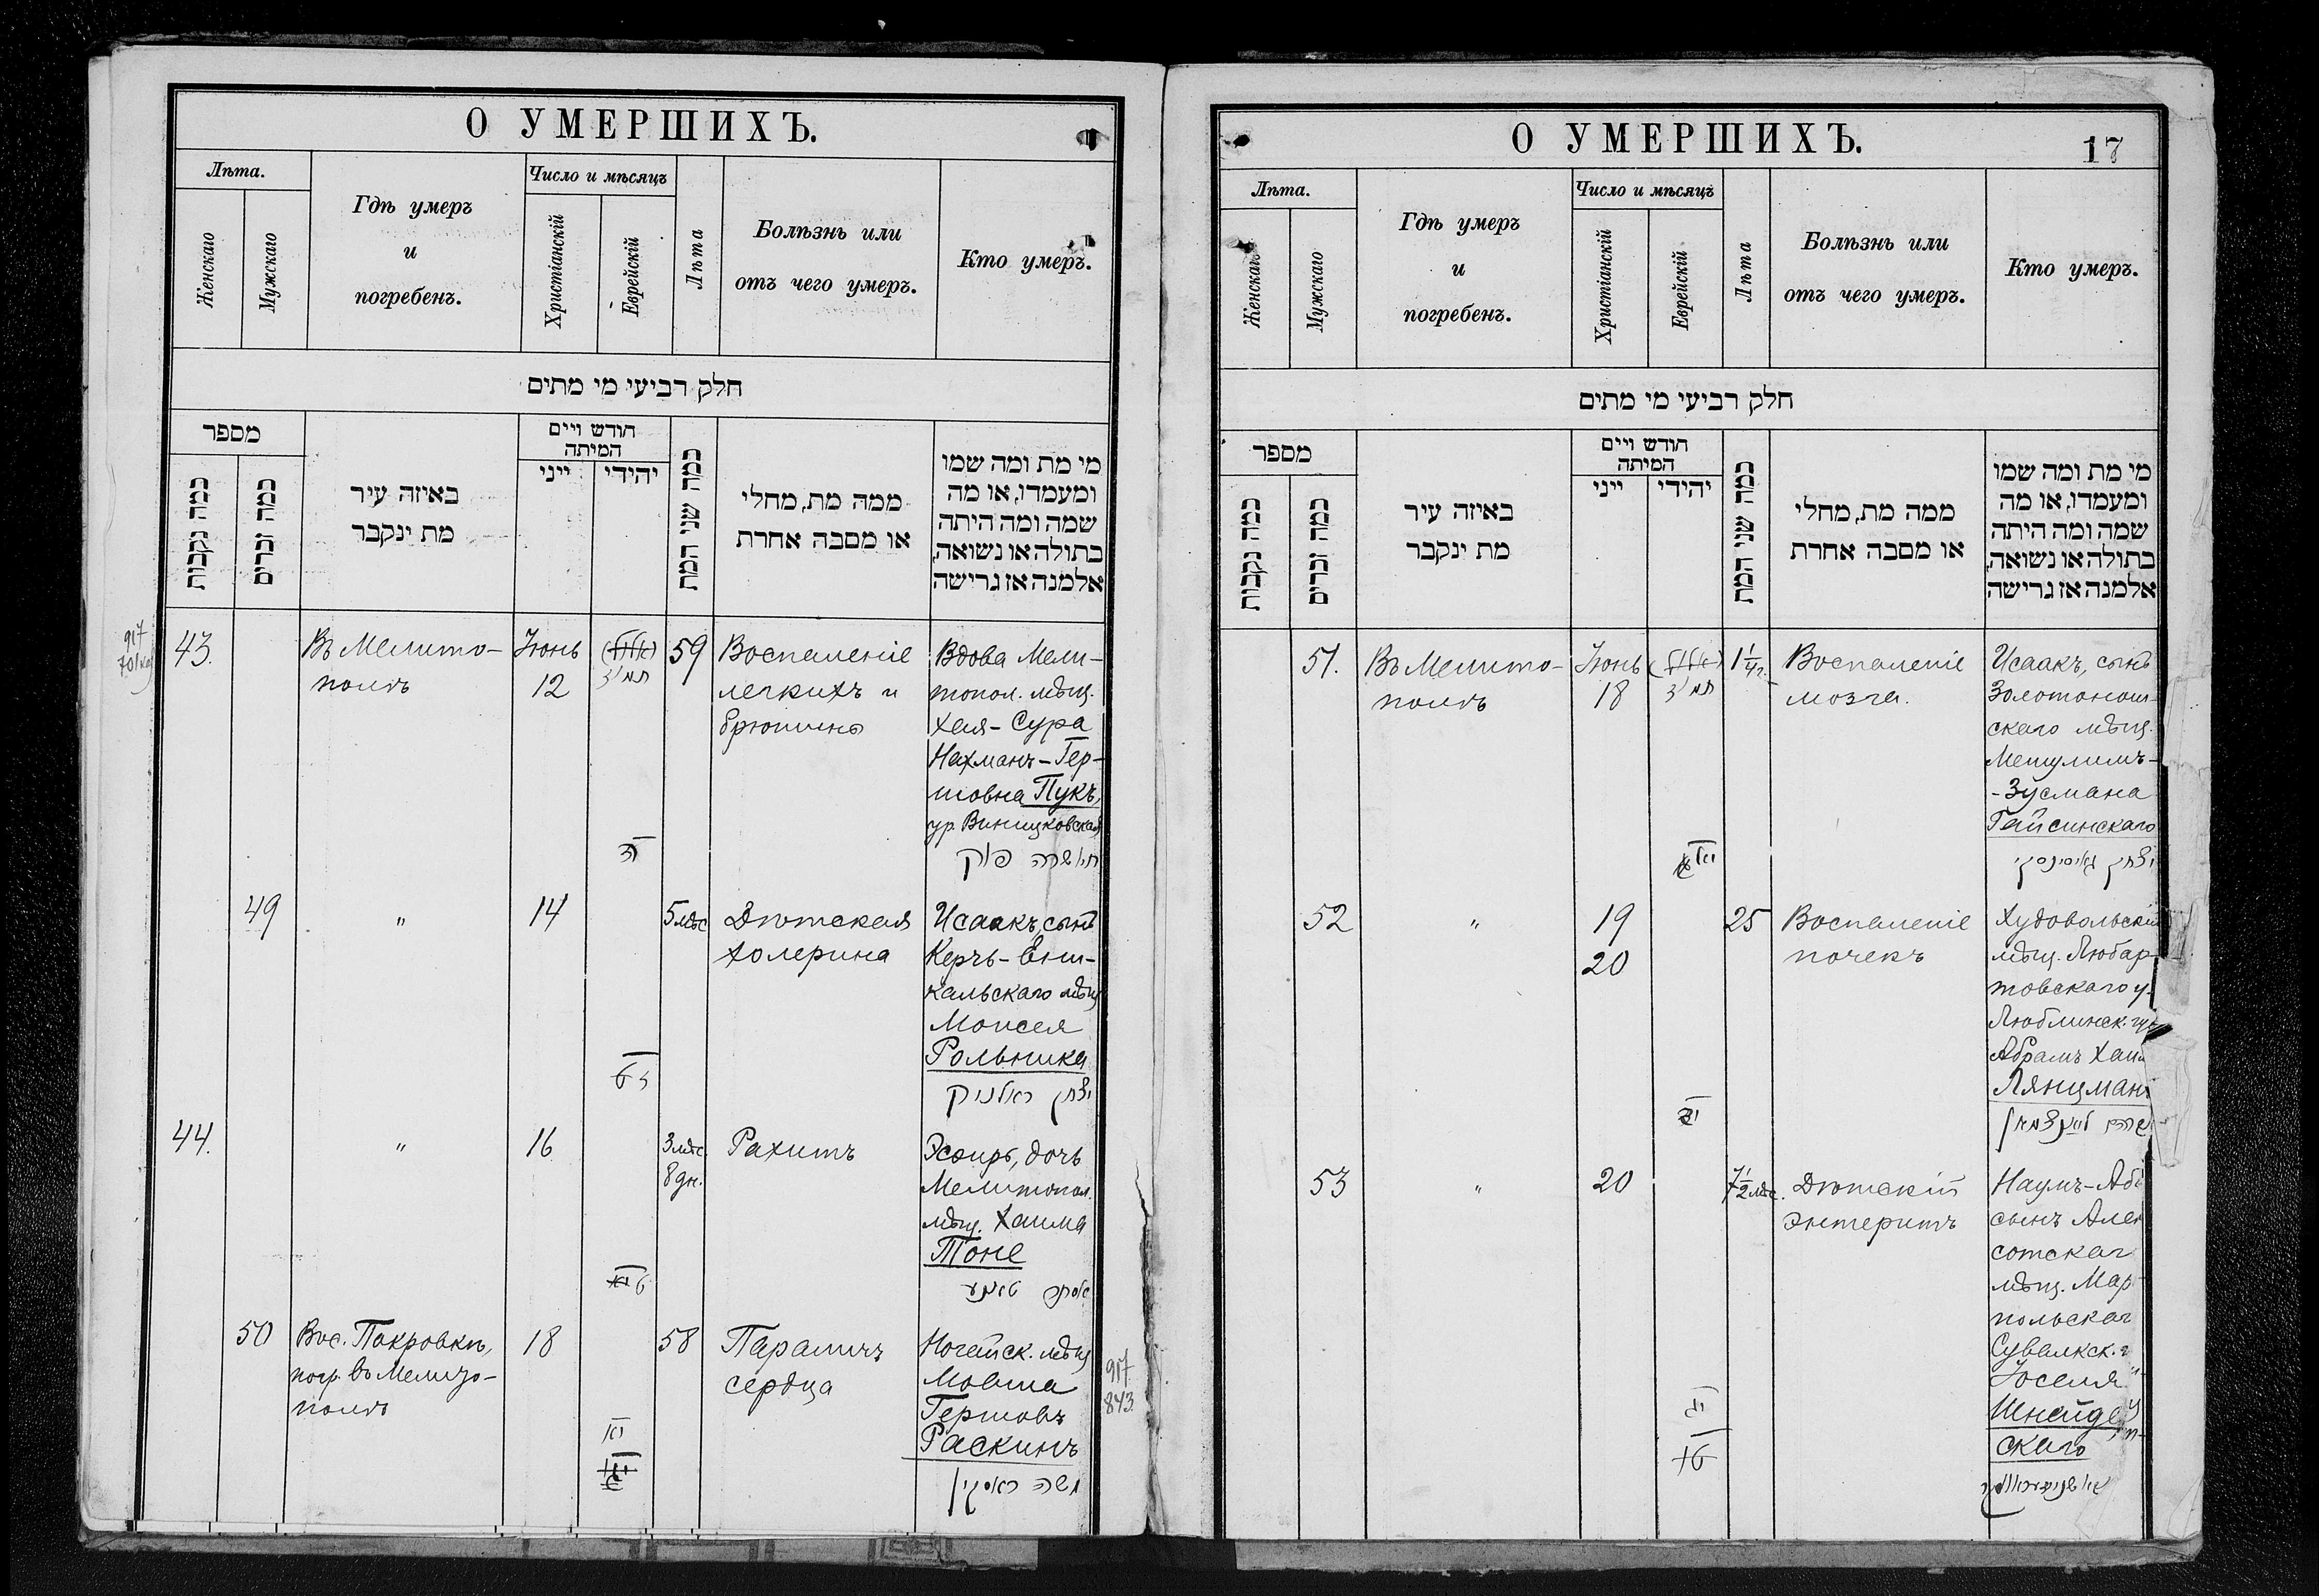 О УМЕРШИХЪ.
Лѣта.
Женскаго
Мужскаго
Гдѣ умеръ
и
погребенъ.
Число и мѣсяцъ
Христіанскій
Еврейскій
Лѣта
Болѣзнь или
отъ чего умеръ.
Кто умеръ.
חלק רביעי מי מתים
מספר
כמה נקבות
כמה זכרים
באיזה עיר
מת ינקבר
חודש ויים
המיתה
ייני
יהידי
כמה שני המת
ממה מת, מחלי
או מסבה אחרת
מי מת ומה שמו
ומעמדו, או מה
שמה ומה היתה
בתולה או נשואה,
אלמנה אז גרישה
917
43.
Въ Мелито-
полѣ
Іюнь
12
59
Воспаленіе
легкихъ и
брюшины
Вдова Мели-
топол. мѣщ.
Хая-Сура
Нахманъ-Гер-
шовна Пукъ,
ур. Виницковская
חיה שרה פוק
49
"
14
5 мѣс
Дѣтская
холерина
Исаакъ, сынъ
Керчь-Ени-
кальскаго мѣщ
Моисея
Рольника
יצחק ראלניק
44.
"
16
3 мѣс.
8 дн.
Рахитъ
Эсфирь, дочь
Мелитопол.
мѣщ. Хаима
Тоне
אסתר טאנע
50
Вос. Покровкѣ,
погр. въ Мелито-
полѣ
18
58
Параличъ
сердца
Ногайск. мѣщ
Мовша
Гершовъ
Раскинъ
משה ראסקין
917
843.
О УМЕРШИХЪ.
17
Лѣта.
Женскаго
Мужскаго
Гдѣ умеръ
и
погребенъ.
Число и мѣсяцъ
Христіанскій
Еврейскій
Лѣта
Болѣзнь или
отъ чего умеръ.
Кто умеръ.
חלק רביעי מי מתים
מספר
כמה נקבות
כמה זכרים
באיזה עיר
מת ינקבר
חודש ויים
המיתה
ייני
יהידי
כמה שני המת
ממה מת, מחלי
או מסבה אחרת
מי מת ומה שמו
ומעמדו, או מה
שמה ומה היתה
בתולה או נשואה,
אלמנה אז גרישה
51.
Въ Мелито-
полѣ
Іюнь
18
1 1/4 г.
Воспаленіе
мозга.
Исаакъ, сынъ
Золотонош-
скаго мѣщ.
Мешулимъ-
-Зусмана
Гайсинскаго
יצחק גאיסינסקי
52
"
19
20
25
Воспаленіе
почекъ
Худовольскій
мѣщ. Любар-
товскаго у.
Люблинск. губ
Абрамъ Хаим
Лянцманъ
53
"
20
7 1/2 мѣс.
Дѣтскій
энтеритъ
Наумъ-Аб
сынъ Алек
сотскаг
мѣщ. Мар-
польскаг
Сувалкск. г
Іоселя
Шнайде
скаго